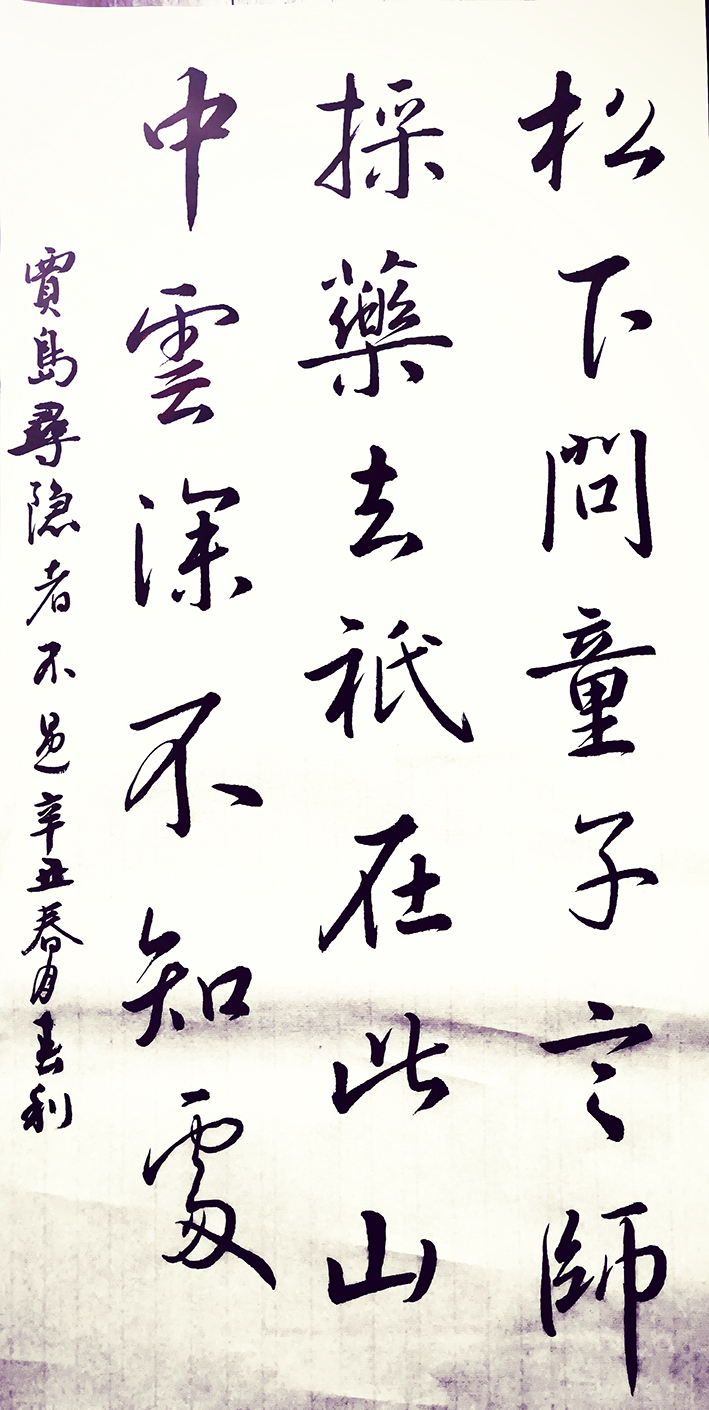 松下問童子言師
採藥去祇在此山
中雲深不知處
賈島尋隐者不遇辛丑春月春利